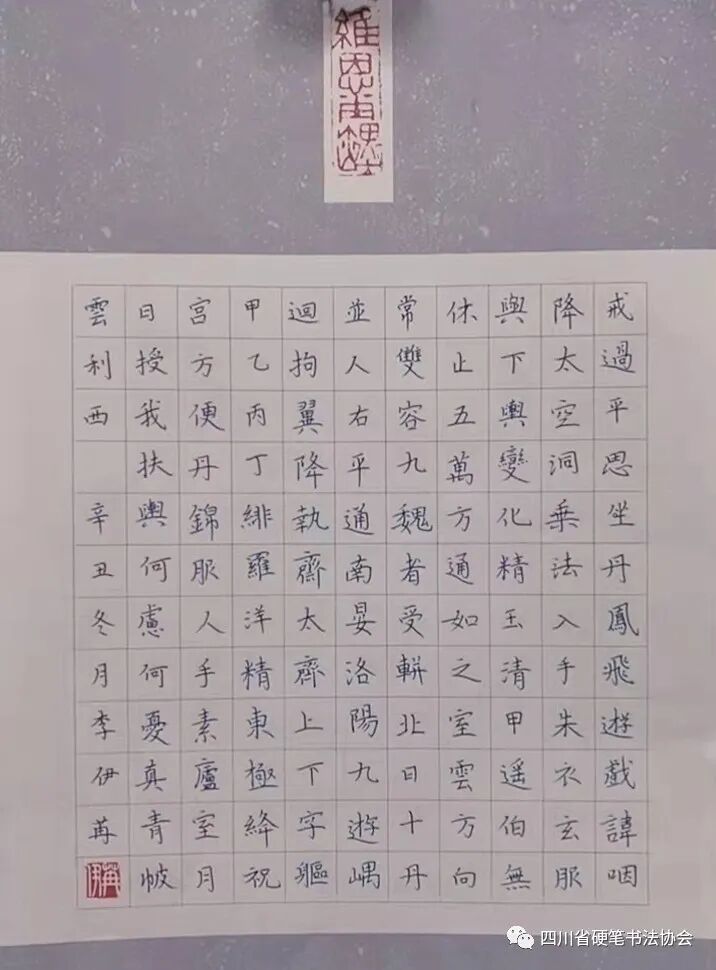 戒過平思坐丹鳳飛遊戲諱咽
降太空洞乗法入手朱衣玄服
與下輿變化精玉清甲遥伯無
休止五萬方通如之室雲方向
常雙容九魏者受輧北日十丹
並人右平通南晏洛陽九遊嵎
迴拘翼降執齋太齊上下字軀
甲乙丙丁緋羅洋精東極絳祝
宫方便丹錦服人手素廬室月
日授我扶輿何慮何憂真青帔
雲利西 辛丑冬月李伊苒
四川省硬笔书法协会